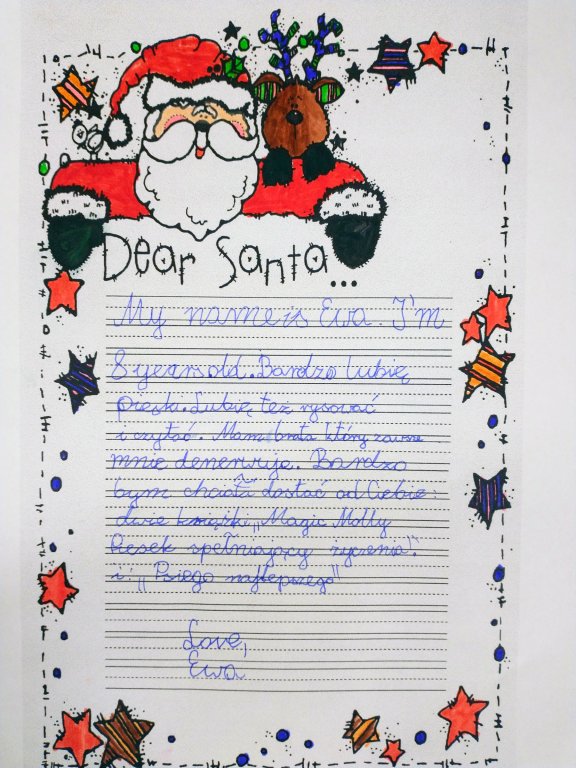 Dear Santa...
My name is Ewa. I'm
8 years old. Bardzo lubię
pieski. Lubię też rysować
i czytać. Mam brata który zawsze
mnie denerwuje. Bardzo
bym chciała dostać od Ciebie:
dwie książki „Magic Molly
Piesek spełniający życzenia".
i: „Psiego najlepszego"
Love,
Ewa